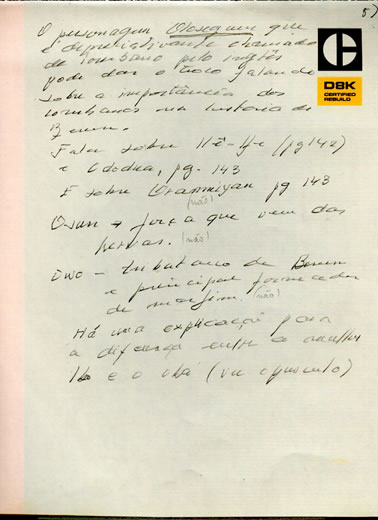 5)
O personagem Obaseguen que
é depreciativante chamado
de Iombano pelo inglês
pode dar o toco falando
sobre a importância dos
iombanos na história de
Benin.
Falar sobre Ilê-Ife (pg 142)
e Ododua, pg. 143
E sobre Oranmiyan pg 143
(não)
Osun → força que vem das
ervas. (não)
Owo – tributário de Benin
e principal fornecedor
de marfim. (não)
Há uma explicação para
a diferença entre o
e o obá (ver opúsculo)
D8K
CERTIFIED
REBUILD